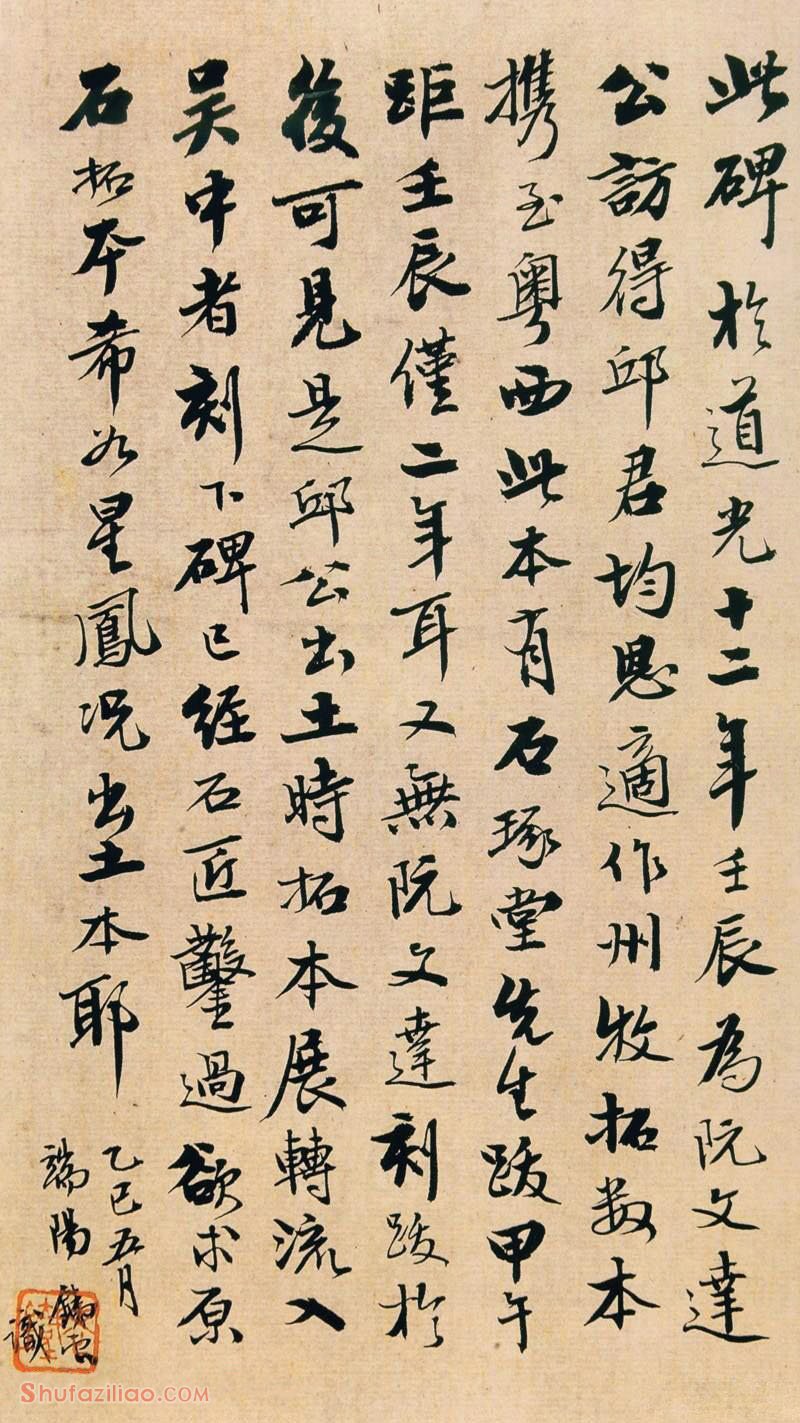 此碑於道光十二年壬辰為阮文達
公訪得邱君均恩適作州牧拓数本
携至粵西此本有石琢堂先生跋甲午
距壬辰僅二年耳又無阮文達刻跋於
後可見是邱公出土時拓本展轉流入
吴中者刻下碑已經石匠鑿過欲求原
石拓本希如星鳳况出土本耶
乙巳五月
端陽
識
Shufaziliao.COM